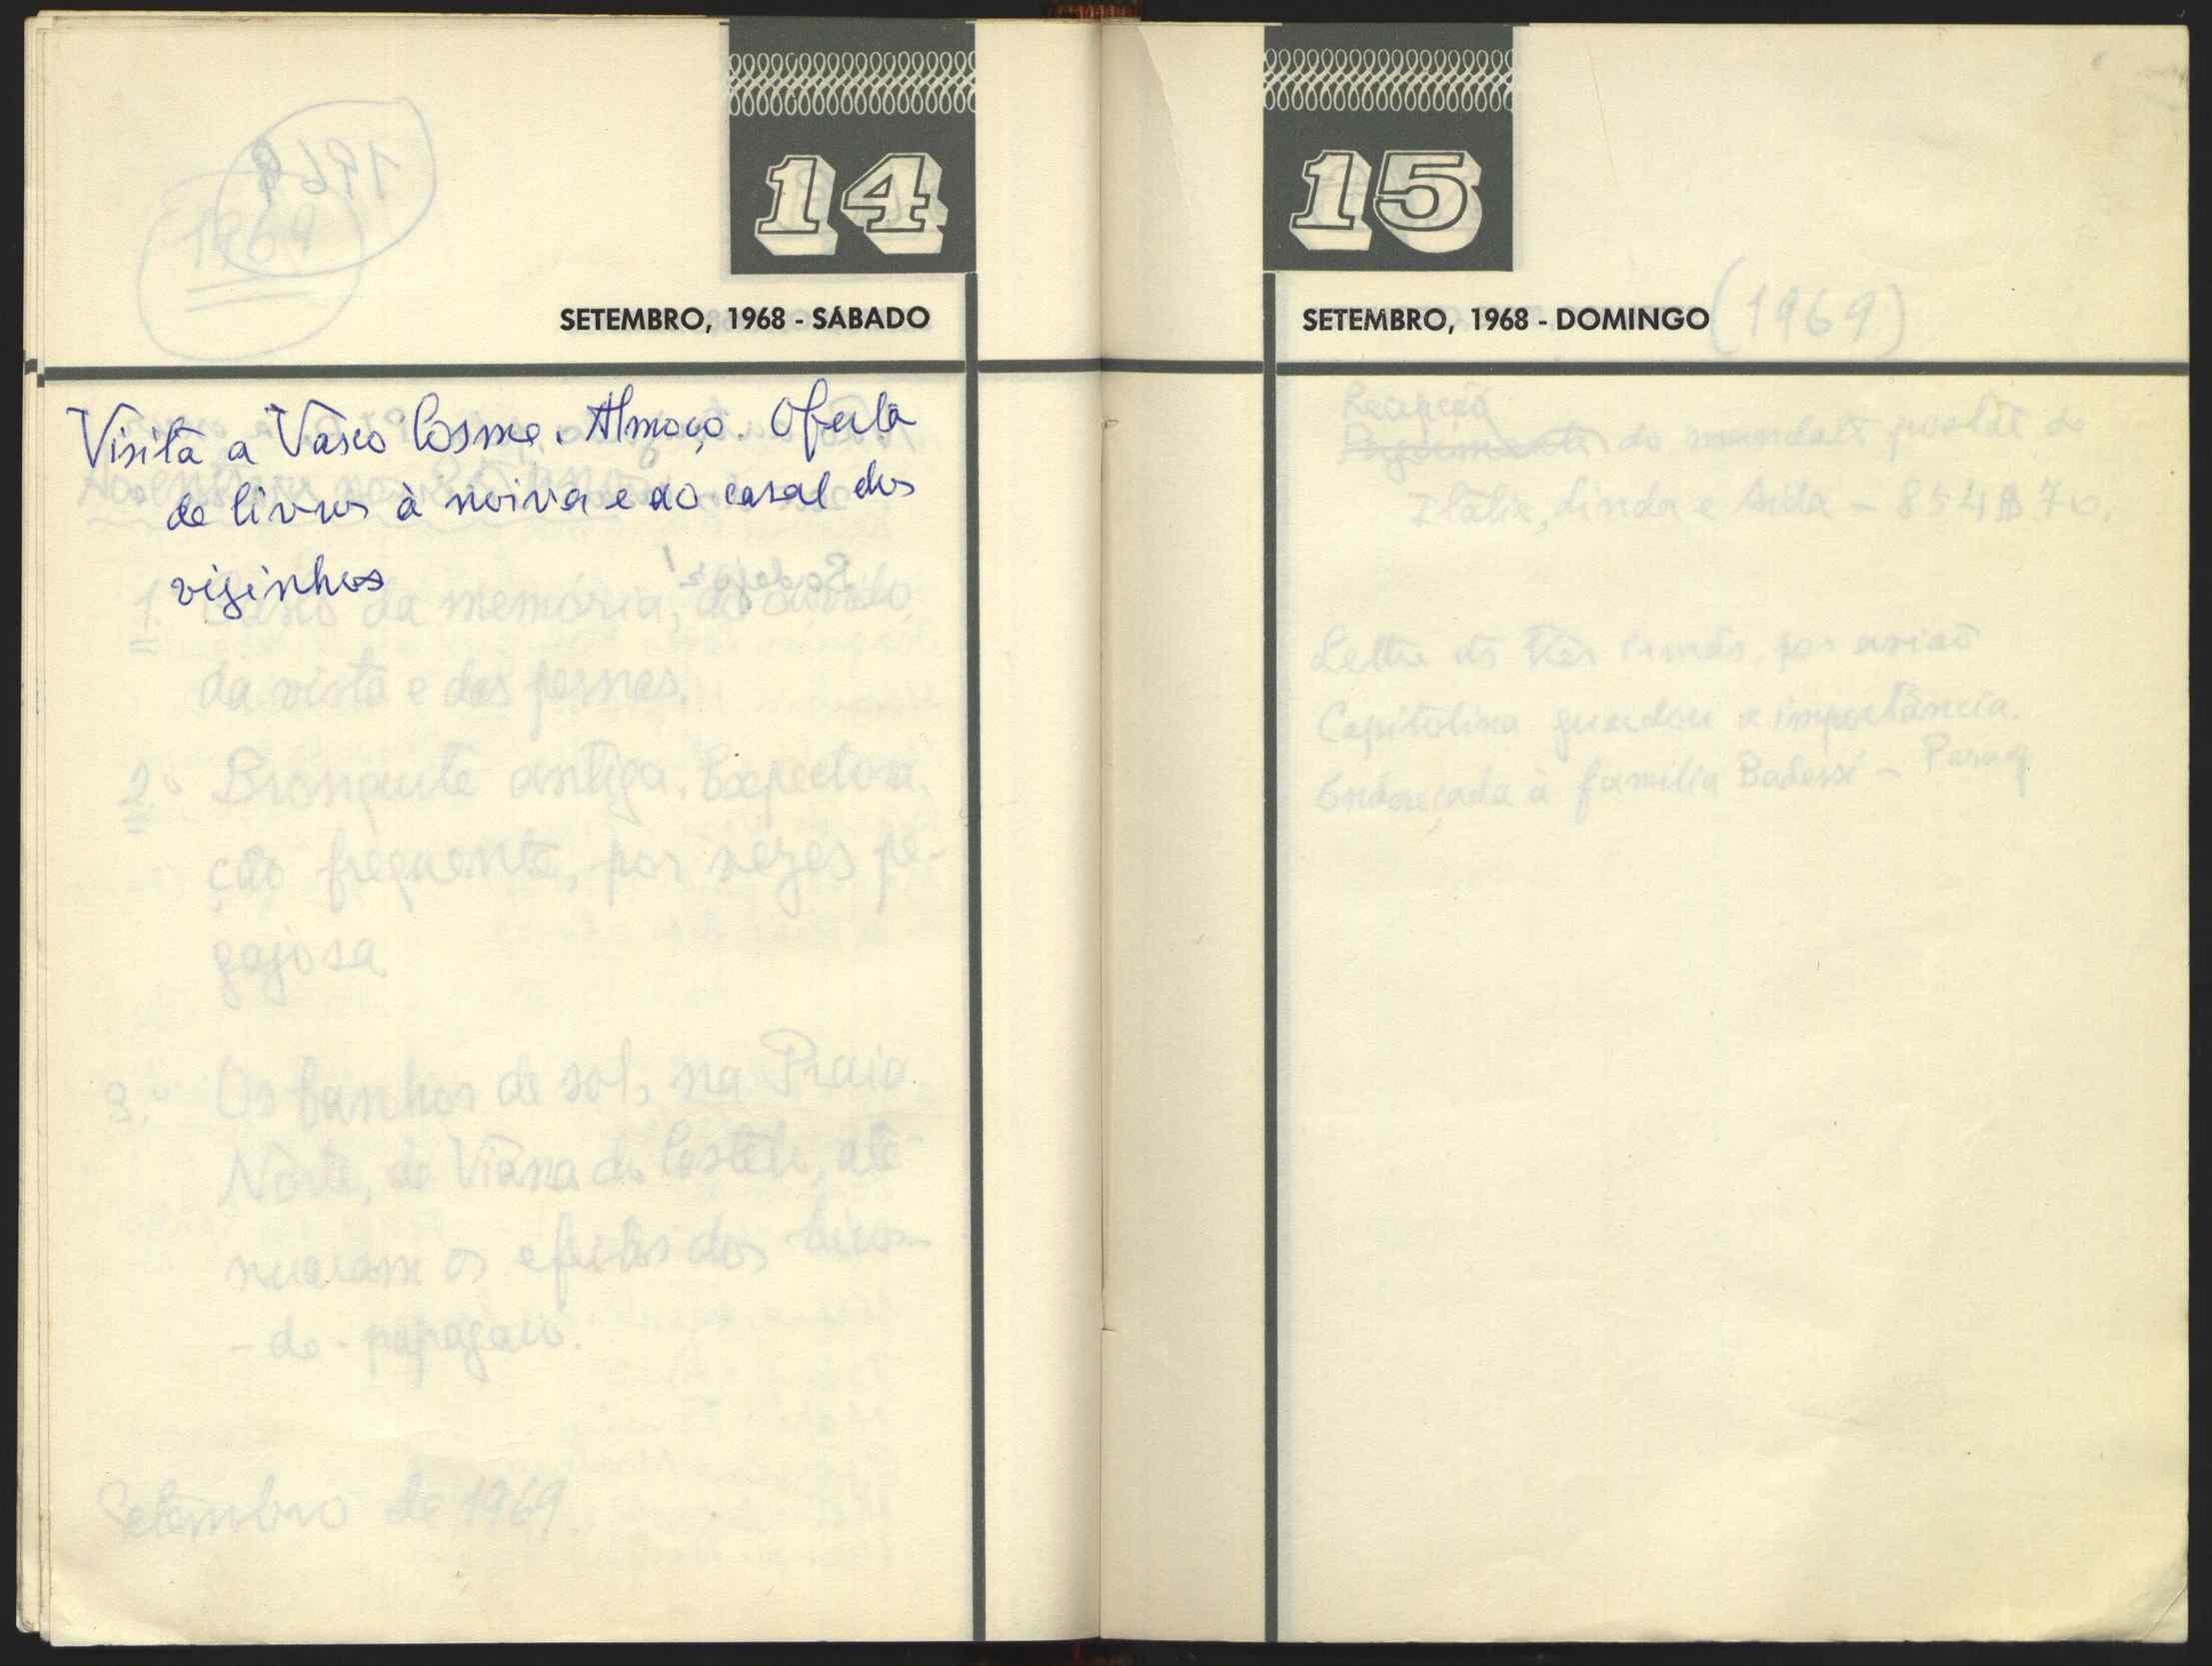 14
SETEMBRO, 1968 - SÁBADO
1969
Visita a Vasco Cosme. Almoço. Oferta
de livros à noiva e ao casal dos
vizinhos
1. da memória, do ouvido,
da vista e das pernas.
2.º Bronquite antiga. Expectora-
ção frequente, por vezes pe-
gajosa
3.º Os banhos de sol, na Praia
Norte, de Viana do Castelo, até
os efeitos dos bicos-
-de-papagaio.
Setembro de 1969.
15
SETEMBRO, 1968 - DOMINGO (1969)
Recepção
do mandato postal de
Itália, Linda e Aida - 854$70.
às três irmãs, por avião
Capitolina guardou a importância.
Endereçada à família Badessi -